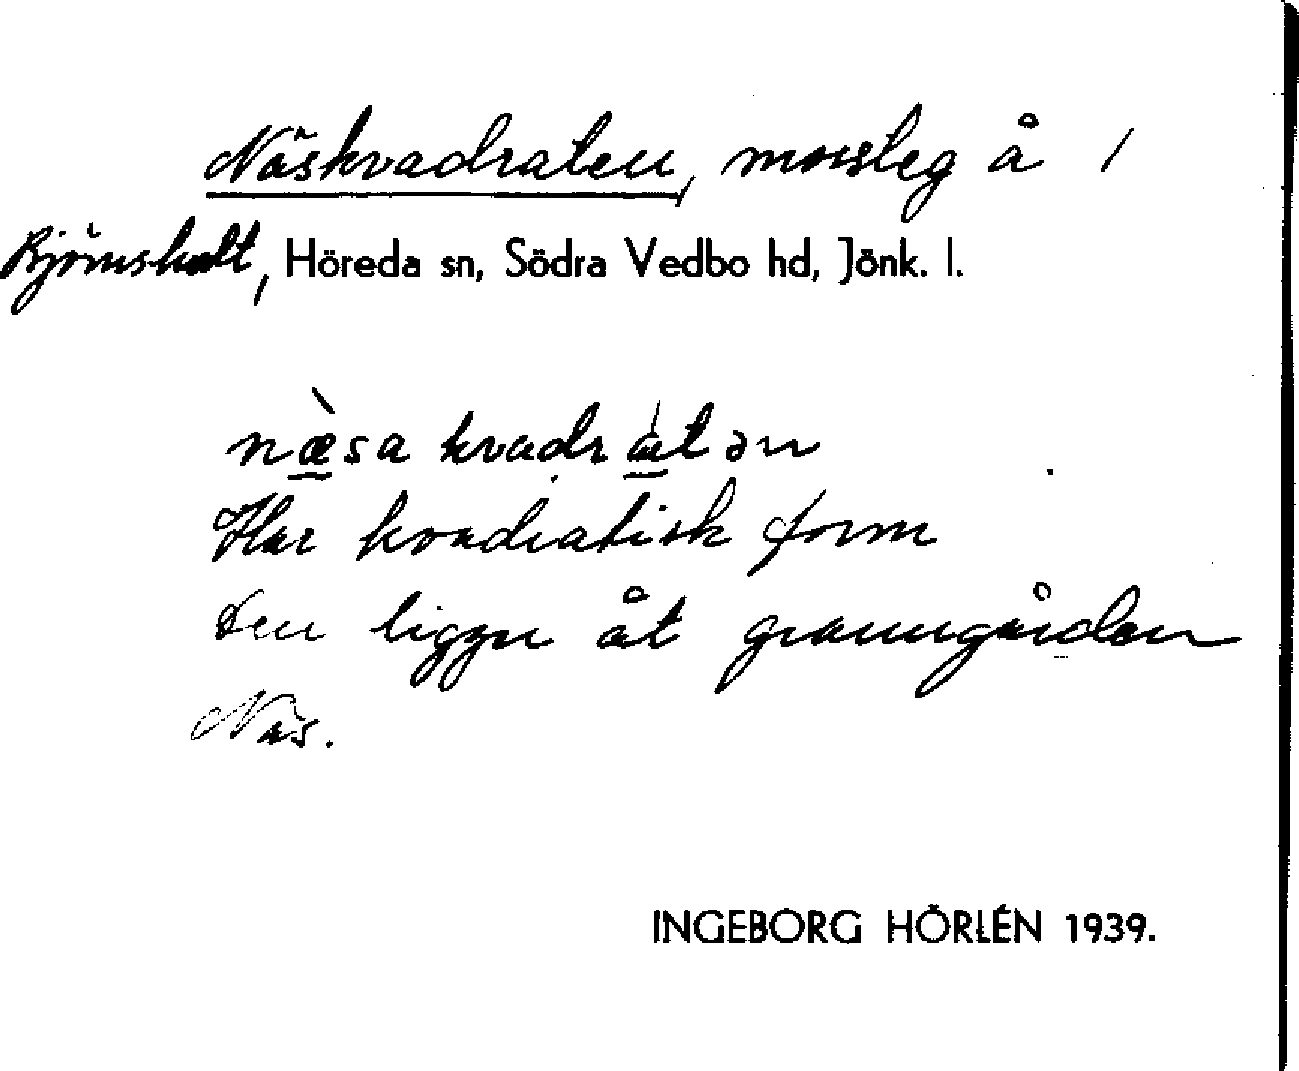 Näskvadraten, mossteg å /
Björnshult, Höreda sn, Södra Vedbo hd, Jönk. l.
næ̀sa kvadrátən
Har kvadratisk form
den ligger åt granngården
Näs.
INGEBORG HÖRLÉN 1939.